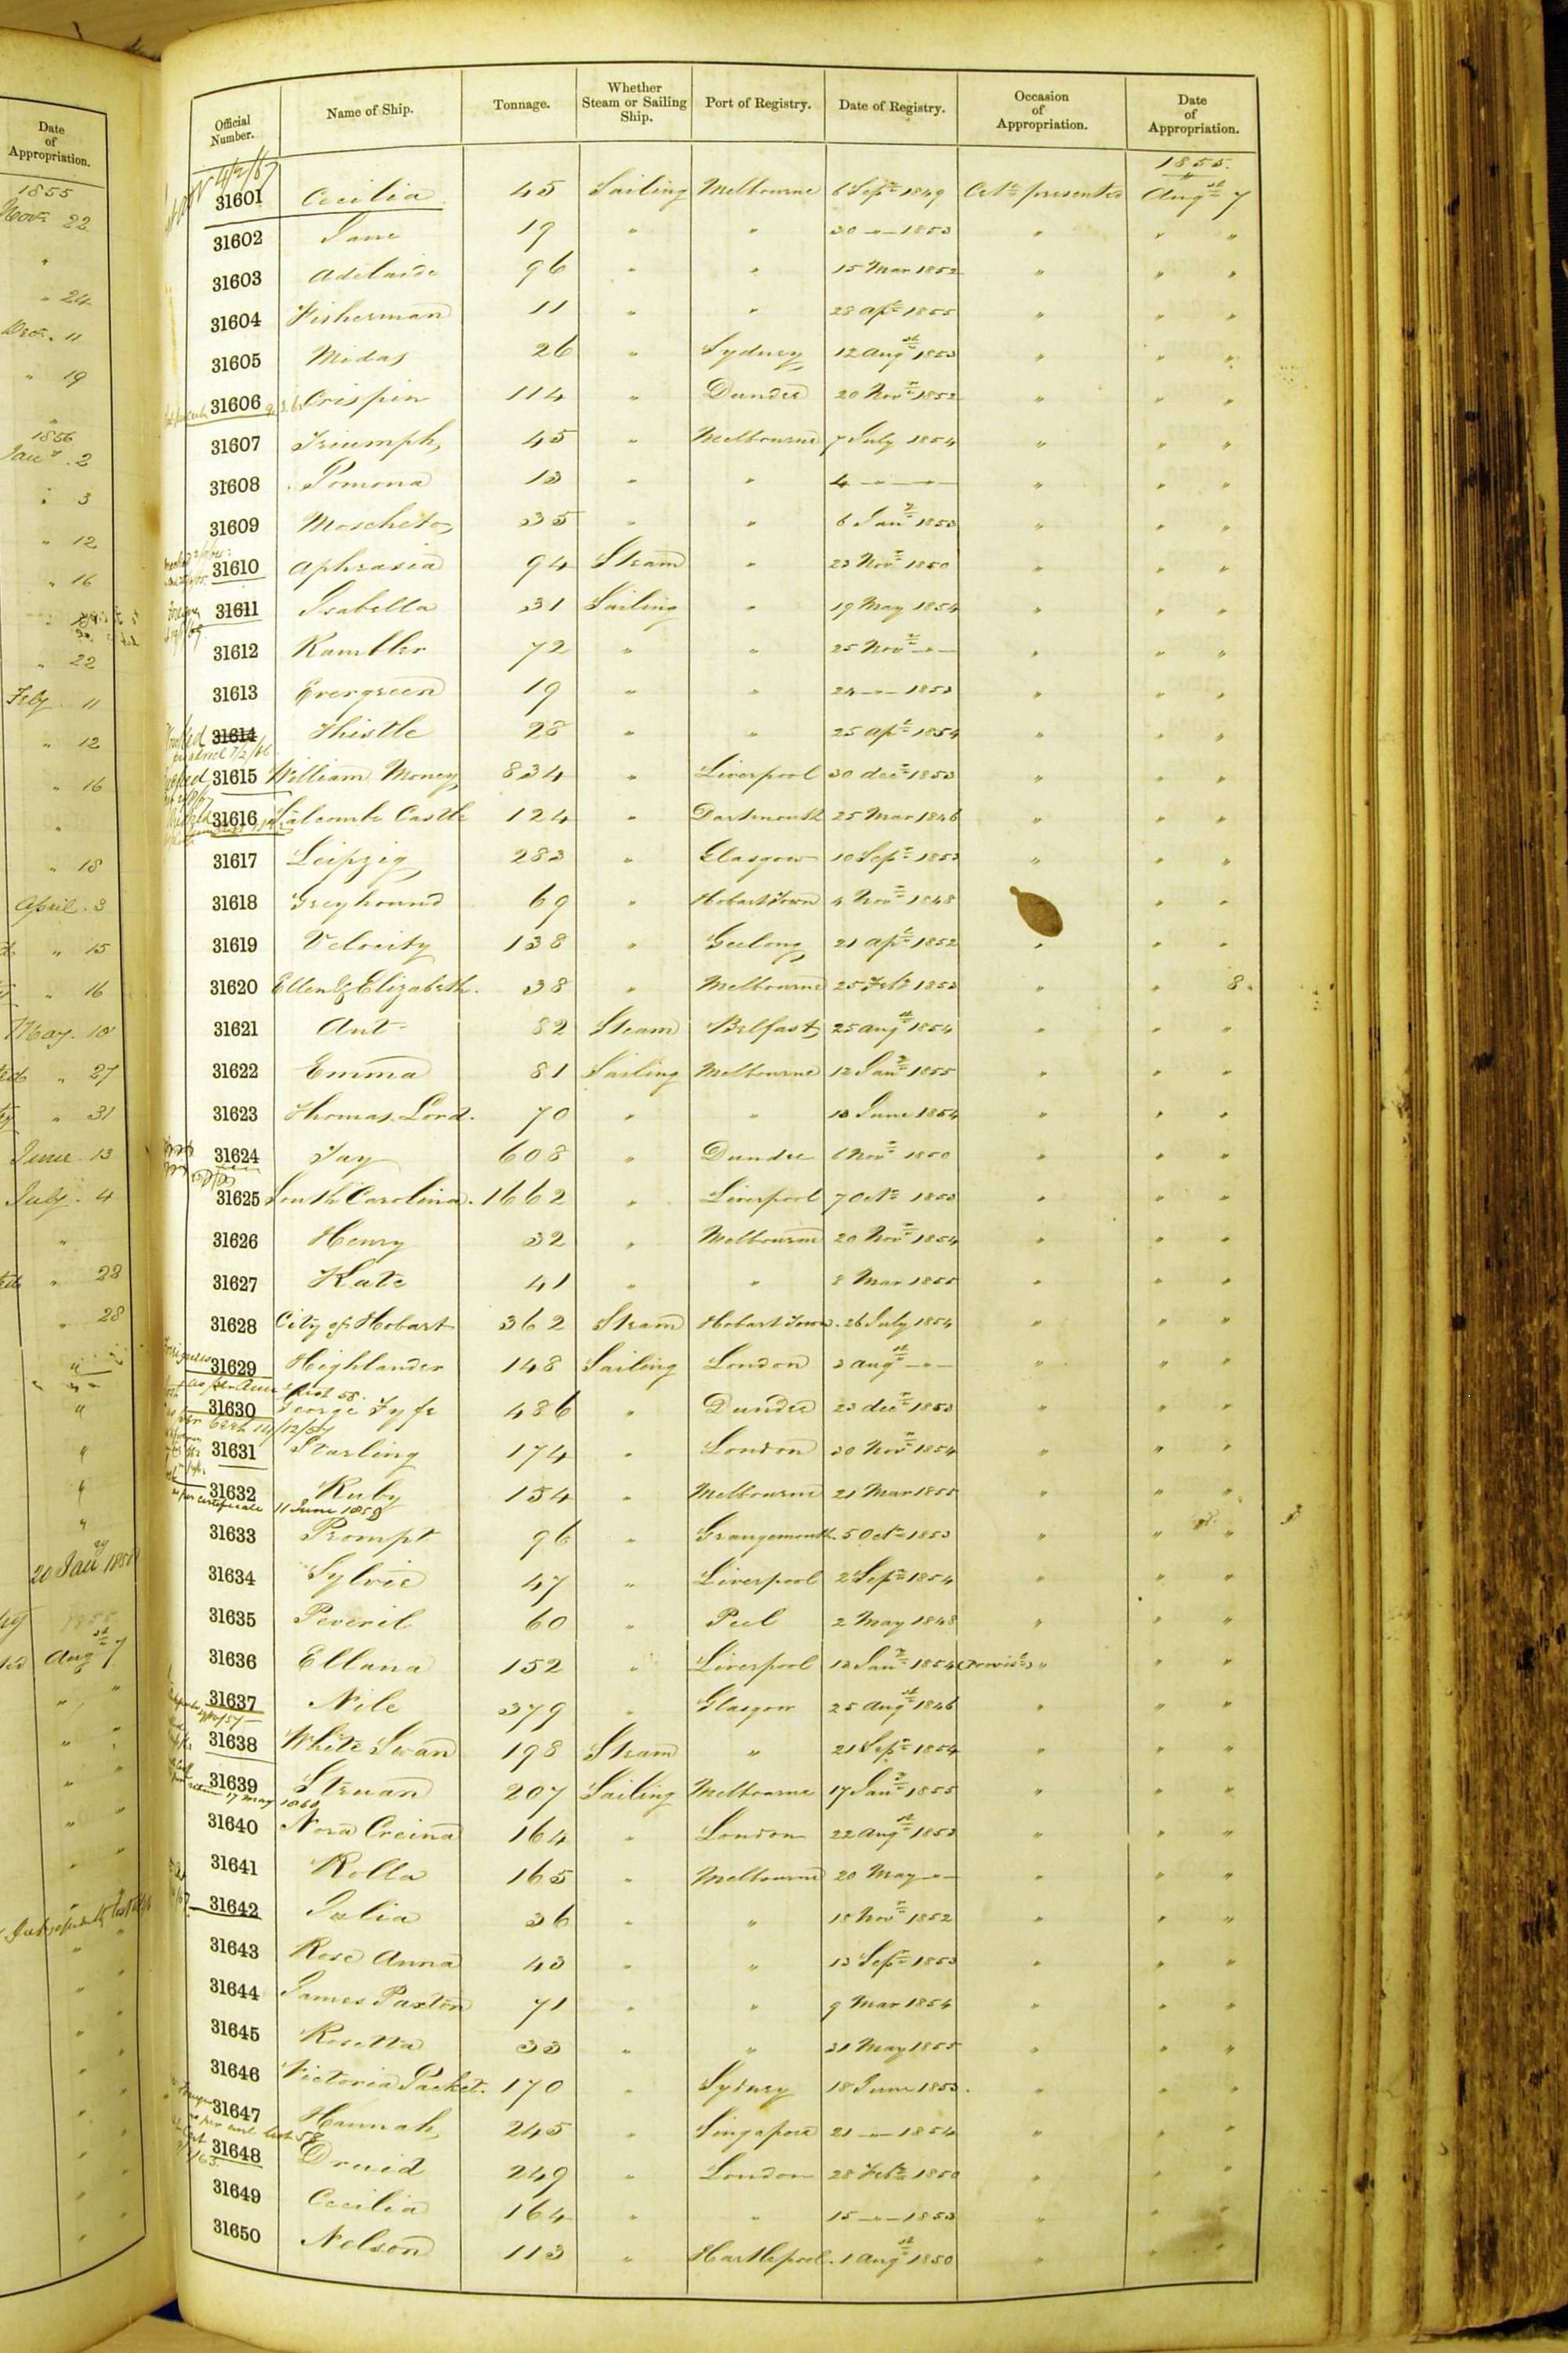 Date
of
Appropriation.
1855
Novr 22
"
" 24
Decr. 11
" 19
"
1856
Jany. 2
" 3
" 12
" 16
" 22
Feby. 11
" 12
" 16
"
" 18
April. 3
" 15
" 16
May. 10
" 27
" 31
June 13
July. 4
"
" 28
" 28
20 Jany 1858
1855
Augst 7
Official Number. Name of Ship. Tonnage. Whether Steam or Sailing Ship. Port of Registry. Date of Registry. Occasion of Appropriation. Date of Appropriation.
1855.
31601 Cecilia 45 Sailing Melbourne 6 Sepr 1849 Augst 7
31602 Jane 19 " " 30 -"- 1853 " " "
31603 Adelaide 96 " " 15 Mar 1852 " " "
31604 Fisherman 11 " " 28 Apl 1855 " " "
31605 Midas 26 " Sydney 12 Augst 1853 " " "
31606 Crispin 114 " Dundee 20 Novr 1852 " " "
31607 Triumph 45 " Melbourne 7 July 1854 " " "
31608 Pomona 13 " " 4 -"- -"- " " "
31609 Moscheto 35 " " 6 Jany 1853 " " "
31610 Aphrasia 94 Steam " 23 Novr 1850 " " "
31611 Isabella 31 Sailing " 19 May 1854 " " "
31612 Rambler 72 " " 25 Novr -"- " " "
31613 Evergreen 19 " " 24 -"- 1853 " " "
31614 Thistle 28 " " 25 Apl 1854 " " "
31615 William Money 834 " Liverpool 30 decr 1853 " "
31616 Salcombe Castle 124 " Dartmouth 25 Mar 1846 " " "
31617 Leipzig 283 " Glasgow 10 Sepr 1853 " " "
31618 Greyhound 69 " Hobart Town 4 Novr 1848 " "
31619 Velocity 138 " Geelong 21 Apl 1852 " " "
31620 Ellen & Elizabeth. 38 " Melbourne 25 Feby 1853 " " 8.
31621 Ant 82 Steam Belfast 25 Augst 1854 " " "
31622 Emma 81 Sailing Melbourne 12 Jany 1855 " " "
31623 Thomas Lord. 70 " " 13 June 1854 " " "
31624 Tay 608 " Dundee 6 Novr 1850 " " "
31625 South Carolina. 1662 " Liverpool 7 Octr 1853 " " "
31626 Henry 32 " Melbourne 20 Novr 1854 " " "
31627 Kate 41 " " 8 Mar 1855 " " "
31628 City of Hobart 362 Steam Hobart Town. 26 July 1854 " " "
31629 Highlander 148 Sailing London 3 Augst -"- " " "
31630 George Fyfe 486 " Dundee 23 decr 1853 " " "
31631 Starling 174 " London 30 Novr 1854 " " "
31632 Ruby 154 " Melbourne 21 Mar 1855 " " "
as per certificate 11 June 1858
31633 Prompt 96 " Grangemouth. 5 Octr 1853 " " "
31634 Sylvie 47 " Liverpool 2 Sepr 1854 " " "
31635 Peveril 60 " Peel 2 May 1848 " " "
31636 Ellana 152 " Liverpool 13 Jany 1854 " " "
31637 Nile 379 " Glasgow 25 Augst 1846 " " "
31638 White Swan 198 Steam " 21 Sepr 1854 " " "
31639 Struan 207 Sailing Melbourne 17 Jany 1855 " " "
31640 Nora Creina 164 " London 22 Augst 1853 " " "
31641 Rolla 165 " Melbourne 20 May -"- " " "
31642 Julia 36 " " 18 Novr 1852 " " "
31643 Rose Anna 43 " " 13 Sepr 1853 " " "
31644 James Paxton 71 " " 9 Mar 1854 " " "
31645 Rosetta 33 " " 31 May 1855 " " "
31646 Victoria Packet. 170 " Sydney 18 June 1853. " " "
31647 Hannah 245 " Singapore 21 -"- 1854 " " "
31648 Druid 249 " London 28 Feby 1850 " " "
31649 Cecilia 164 " " 15 -"- 1853 " " "
31650 Nelson 113 " Hartlepool. 1 Augst 1850 " " "